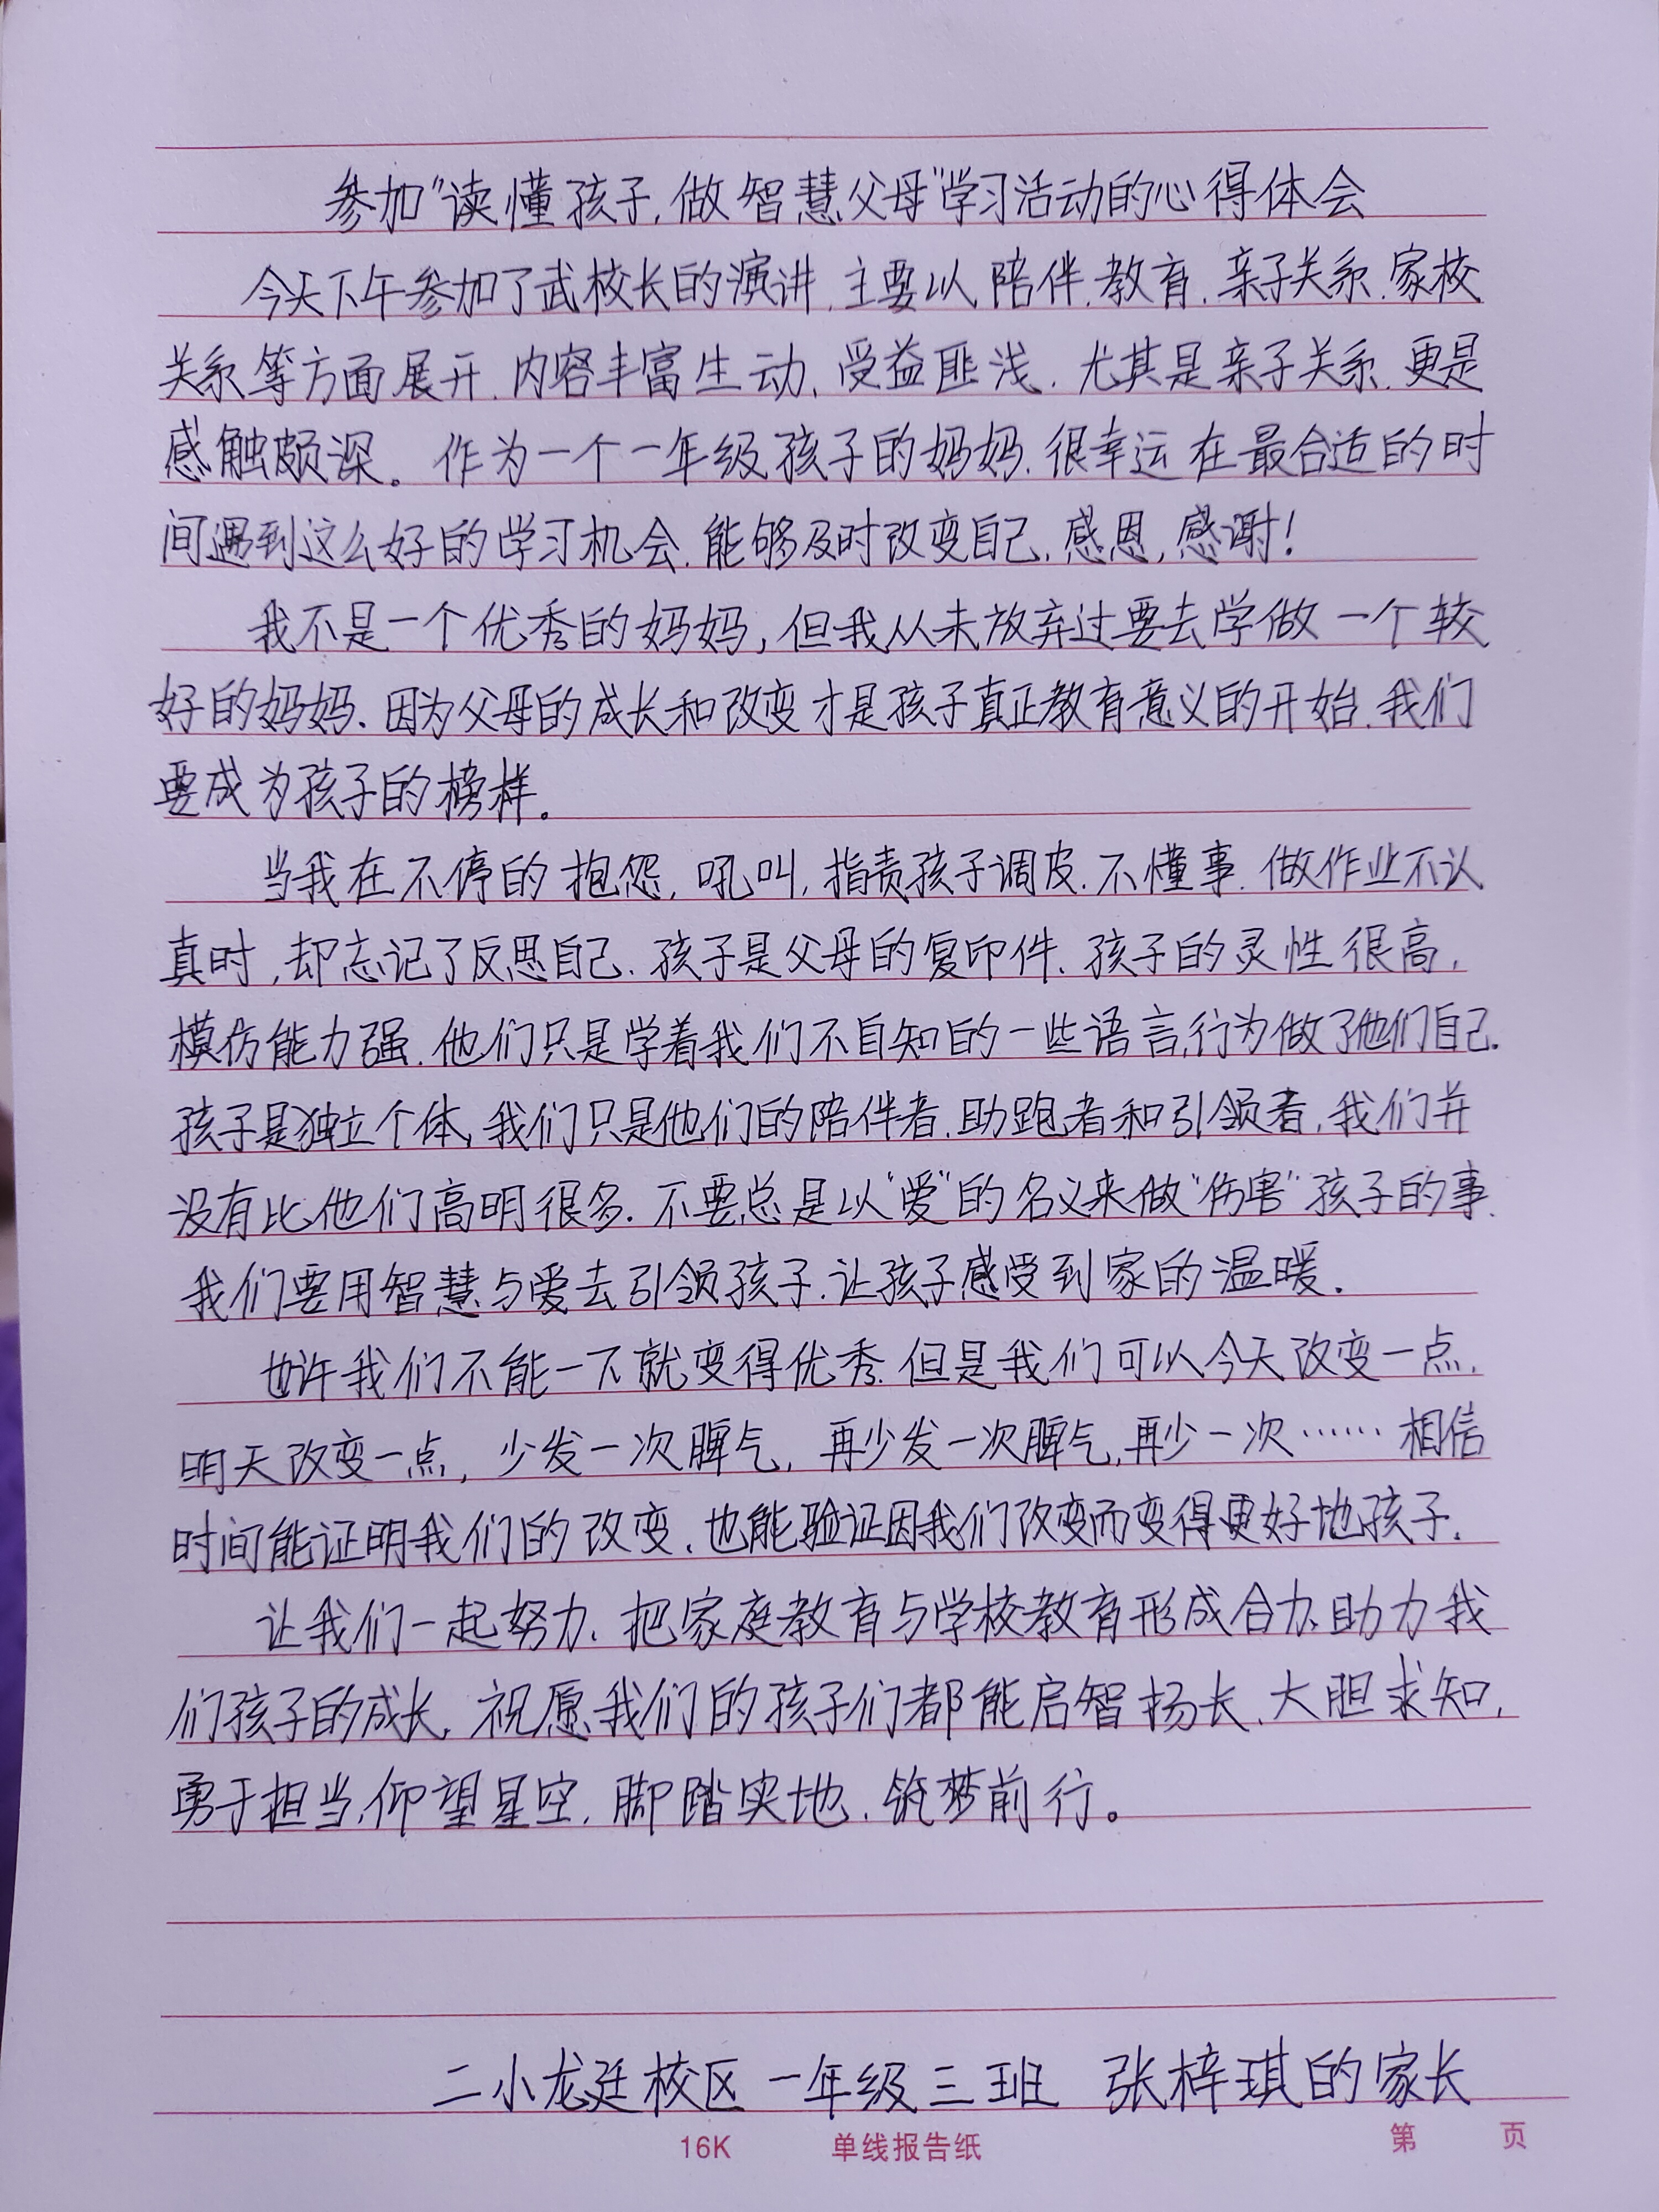 参加“读懂孩子,做智慧父母”学习活动的心得体会
今天下午参加了武校长的演讲,主要以陪伴.教育.亲子关系.家校
关系等方面展开.内容丰富生动,受益匪浅.尤其是亲子关系.更是
感触颇深。作为一个一年级孩子的妈妈.很幸运在最合适的时
间遇到这么好的学习机会.能够及时改变自己.感恩,感谢!
我不是一个优秀的妈妈,但我从未放弃过要去学做一个较
好的妈妈.因为父母的成长和改变才是孩子真正教育意义的开始.我们
要成为孩子的榜样。
当我在不停的抱怨,吼叫,指责孩子调皮.不懂事.做作业不认
真时,却忘记了反思自己.孩子是父母的复印件.孩子的灵性很高,
模仿能力强.他们只是学着我们不自知的一些语言,行为做了他们自己.
孩子是独立个体,我们只是他们的陪伴者.助跑者和引领者,我们并
没有比他们高明很多.不要总是以“爱”的名义来做“伤害”孩子的事.
我们要用智慧与爱去引领孩子.让孩子感受到家的温暖.
也许我们不能一下就变得优秀.但是我们可以今天改变一点.
明天改变一点,少发一次脾气,再少发一次脾气,再少一次……相信
时间能证明我们的改变.也能验证因我们改变而变得更好地孩子.
让我们一起努力.把家庭教育与学校教育形成合力.助力我
们孩子的成长.祝愿我们的孩子们都能启智扬长.大胆求知,
勇于担当.仰望星空.脚踏实地.筑梦前行。
二小龙廷校区一年级三班 张梓琪的家长
16K 单线报告纸 第 页